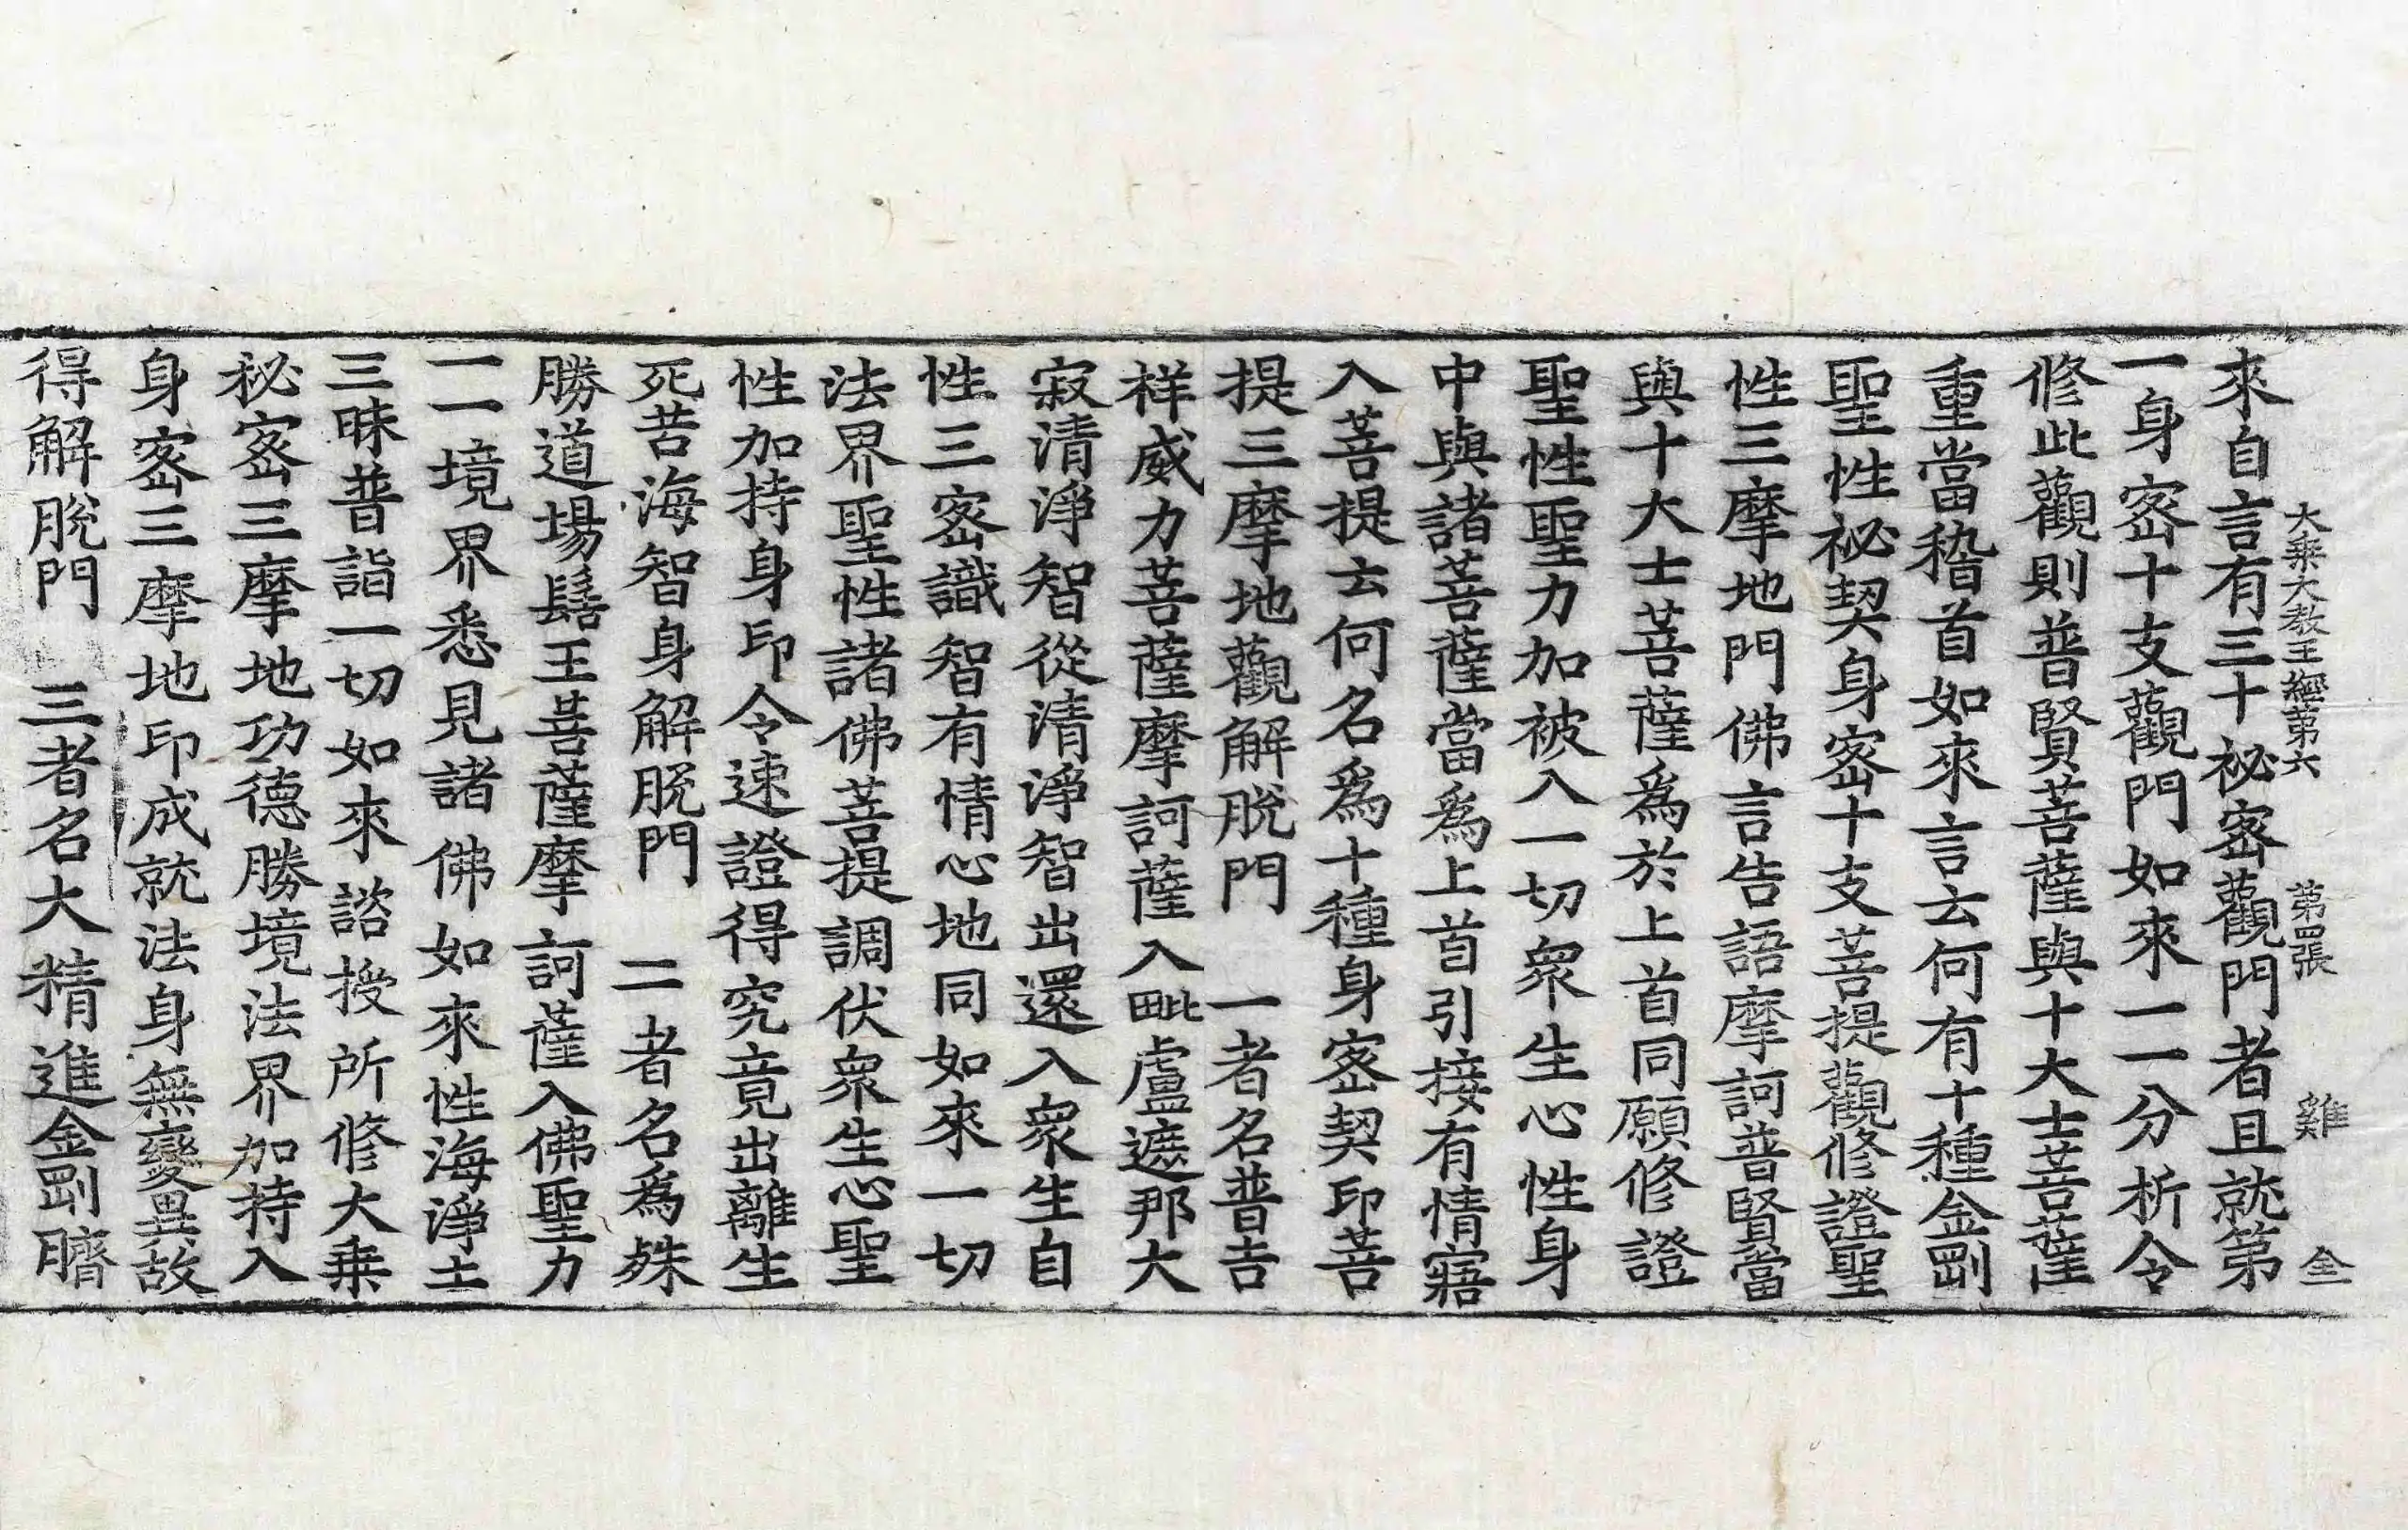 大乘大教王經第六 第四張 雞 全
來自言有三十祕密觀門者且就第
一身密十支觀門如來一一分析令
修此觀則普賢菩薩與十大士菩薩
重當稽首如來言云何有十種金剛
聖性祕契身密十支菩提觀修證聖
性三摩地門佛言告語摩訶普賢當
與十大士菩薩爲於上首同願修證
聖性聖力加被入一切衆生心性身
中與諸菩薩當爲上首引接有情寤
入菩提云何名爲十種身密契印菩
提三摩地觀解脫門 一者名普吉
祥威力菩薩摩訶薩入毗盧遮那大
寂清淨智從清淨智出還入衆生自
性三密識智有情心地同如來一切
法界聖性諸佛菩提調伏衆生心聖
性加持身印令速證得究竟出離生
死苦海智身解脫門 二者名爲殊
勝道場髻王菩薩摩訶薩入佛聖力
一一境界悉見諸佛如來性海淨土
三昧普詣一切如來諮授所修大乘
祕密三摩地功德勝境法界加持入
身密三摩地印成就法身無變異故
得解脫門 三者名大精進金剛臍